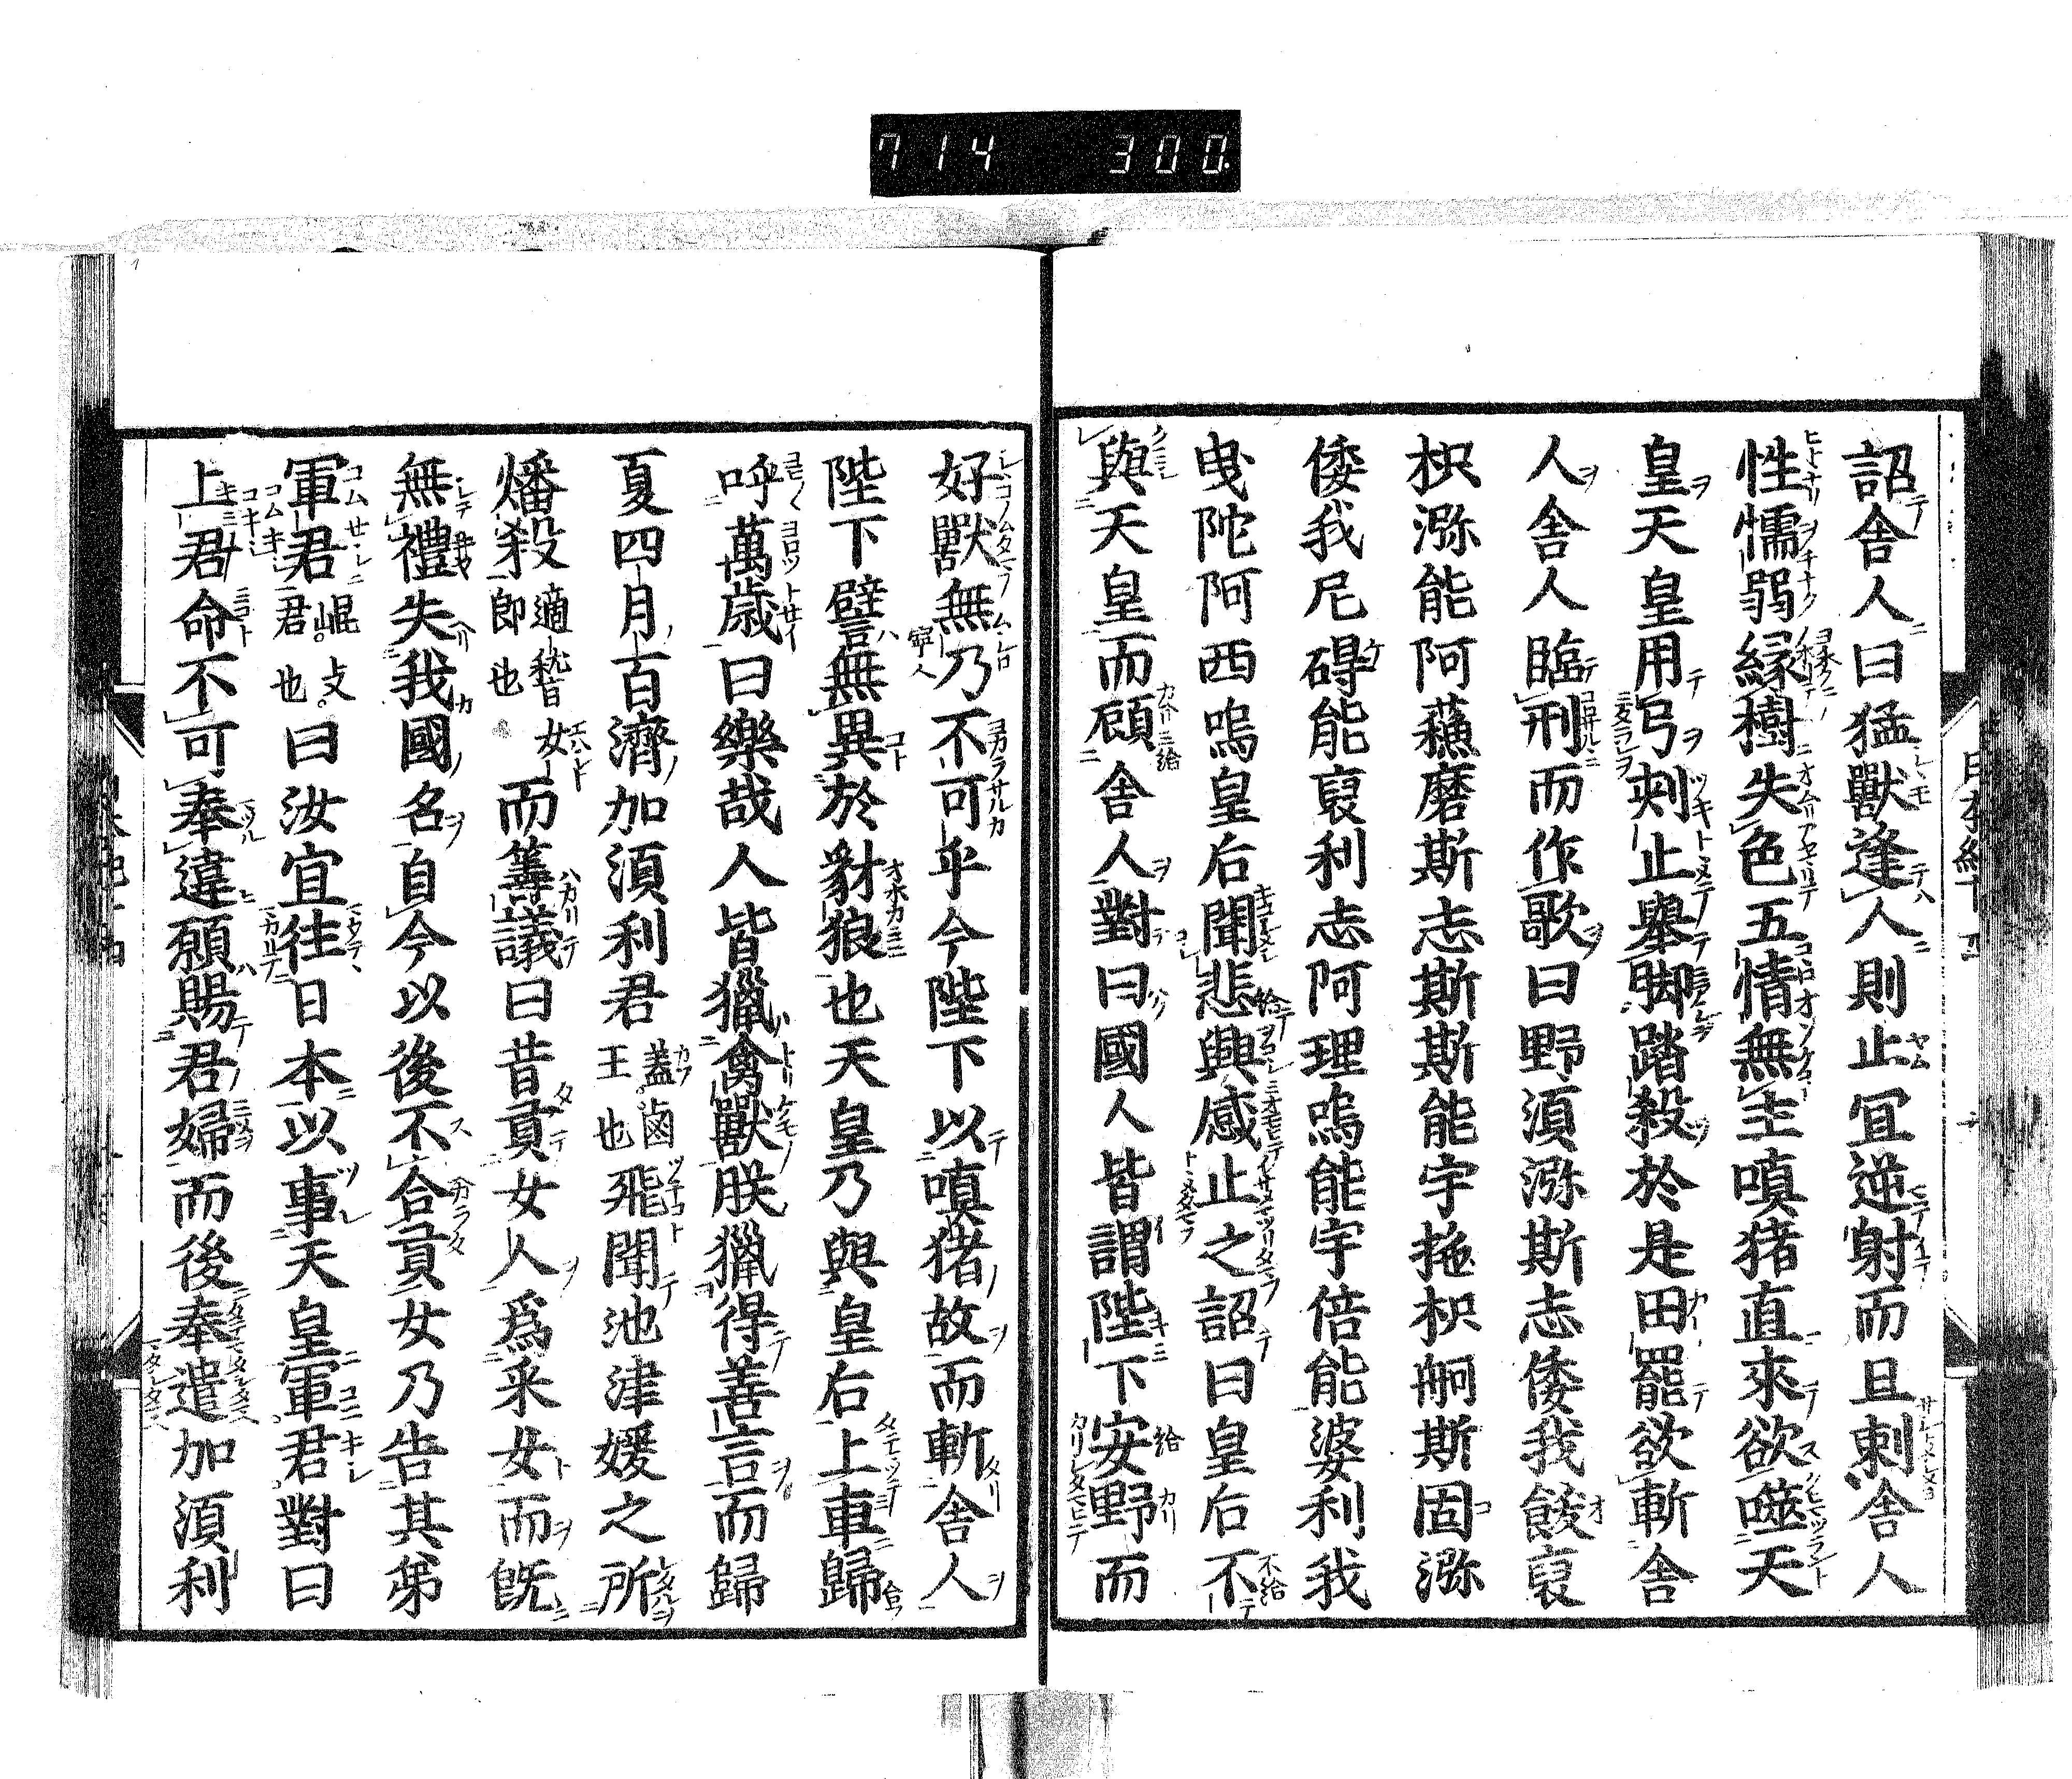 714 300
詔舎人曰猛獸逢人則止宜逆射而且刺舎人
性懦弱縁樹失色五情無主嗔猪直來欲噬天
皇天皇用弓刺止舉脚踏殺於是田罷欲斬舎
人舎人臨刑而作歌曰野須瀰斯志倭我飫裒
枳瀰能阿蘓磨斯志斯斯能宇拖枳舸斯固瀰
倭我尼碍能裒利志阿理嗚能宇倍能婆利我
曳陀阿西嗚皇后聞悲興感止之詔曰皇后不
與天皇而顧舎人對曰國人皆謂陛下安野而
好獸無乃不可乎今陛下以嗔猪故而斬舎人
陛下譬無異於豺狼也天皇乃與皇后上車歸
呼萬歳曰樂哉人皆獵禽獸朕獵得善言而歸
夏四月百濟加須利君蓋鹵王也飛聞池津媛之所
燔殺適稽女郎也而籌議曰昔貢女人爲采女而既
無禮失我國名自今以後不合貢女乃告其弟
軍君崐支君也曰汝宜往日本以事天皇軍君對曰
上君命不可奉違願賜君婦而後奉遣加須利